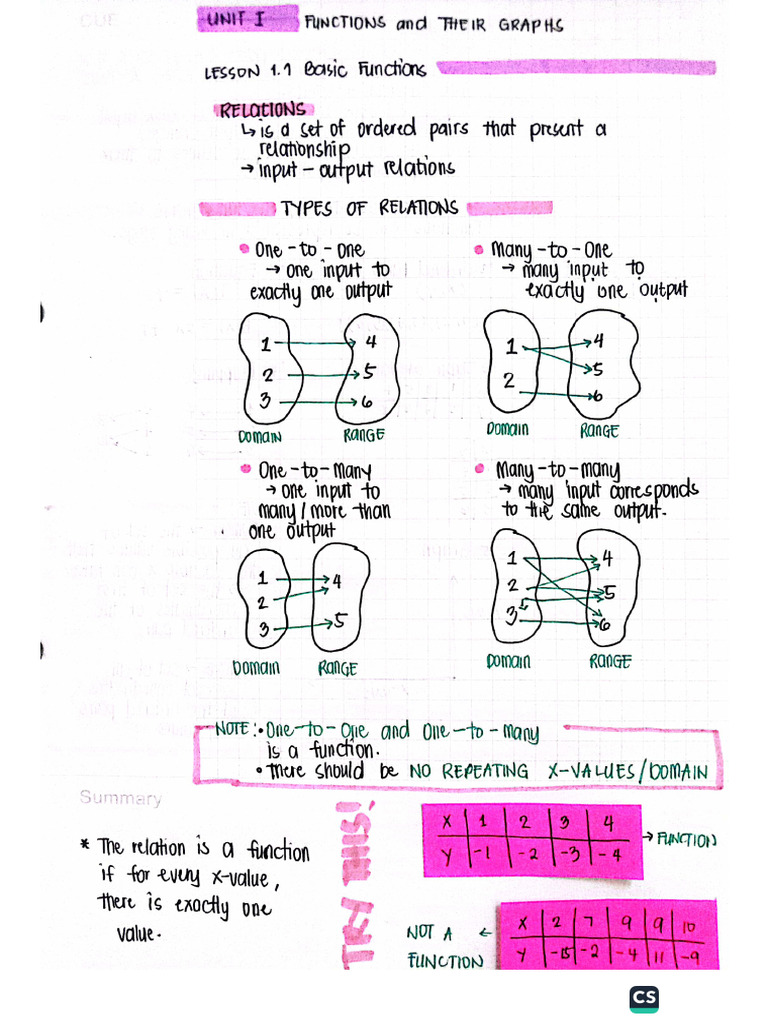 UNIT I FUNCTIONS and THEIR GRAPHS
LESSON 1.1 Basic Functions
RELATIONS
↳ is a set of ordered pairs that present a
relationship
→ input - output relations
TYPES OF RELATIONS
• One-to-one
→ one input to
exactly one output
1 4
2 5
3 6
DOMAIN RANGE
• Many-to-One
→ many input to
exactly one output
1 4
5
2 6
DOMAIN RANGE
• One-to-Many
→ one input to
many/more than
one output
1 4
2
3 5
DOMAIN RANGE
• Many-to-many
→ many input corresponds
to the same output.
1 4
2 5
3 6
DOMAIN RANGE
NOTE: • One-to-One and One-to-many
is a function.
• there should be NO REPEATING X-VALUES/DOMAIN
Summary
* The relation is a function
if for every x-value,
there is exactly one
value.
TRY THIS!
X 1 2 3 4
Y -1 -2 -3 -4
→ FUNCTION
NOT A ←
FUNCTION
X 2 7 9 9 10
Y -15 -2 -4 11 -9
CS